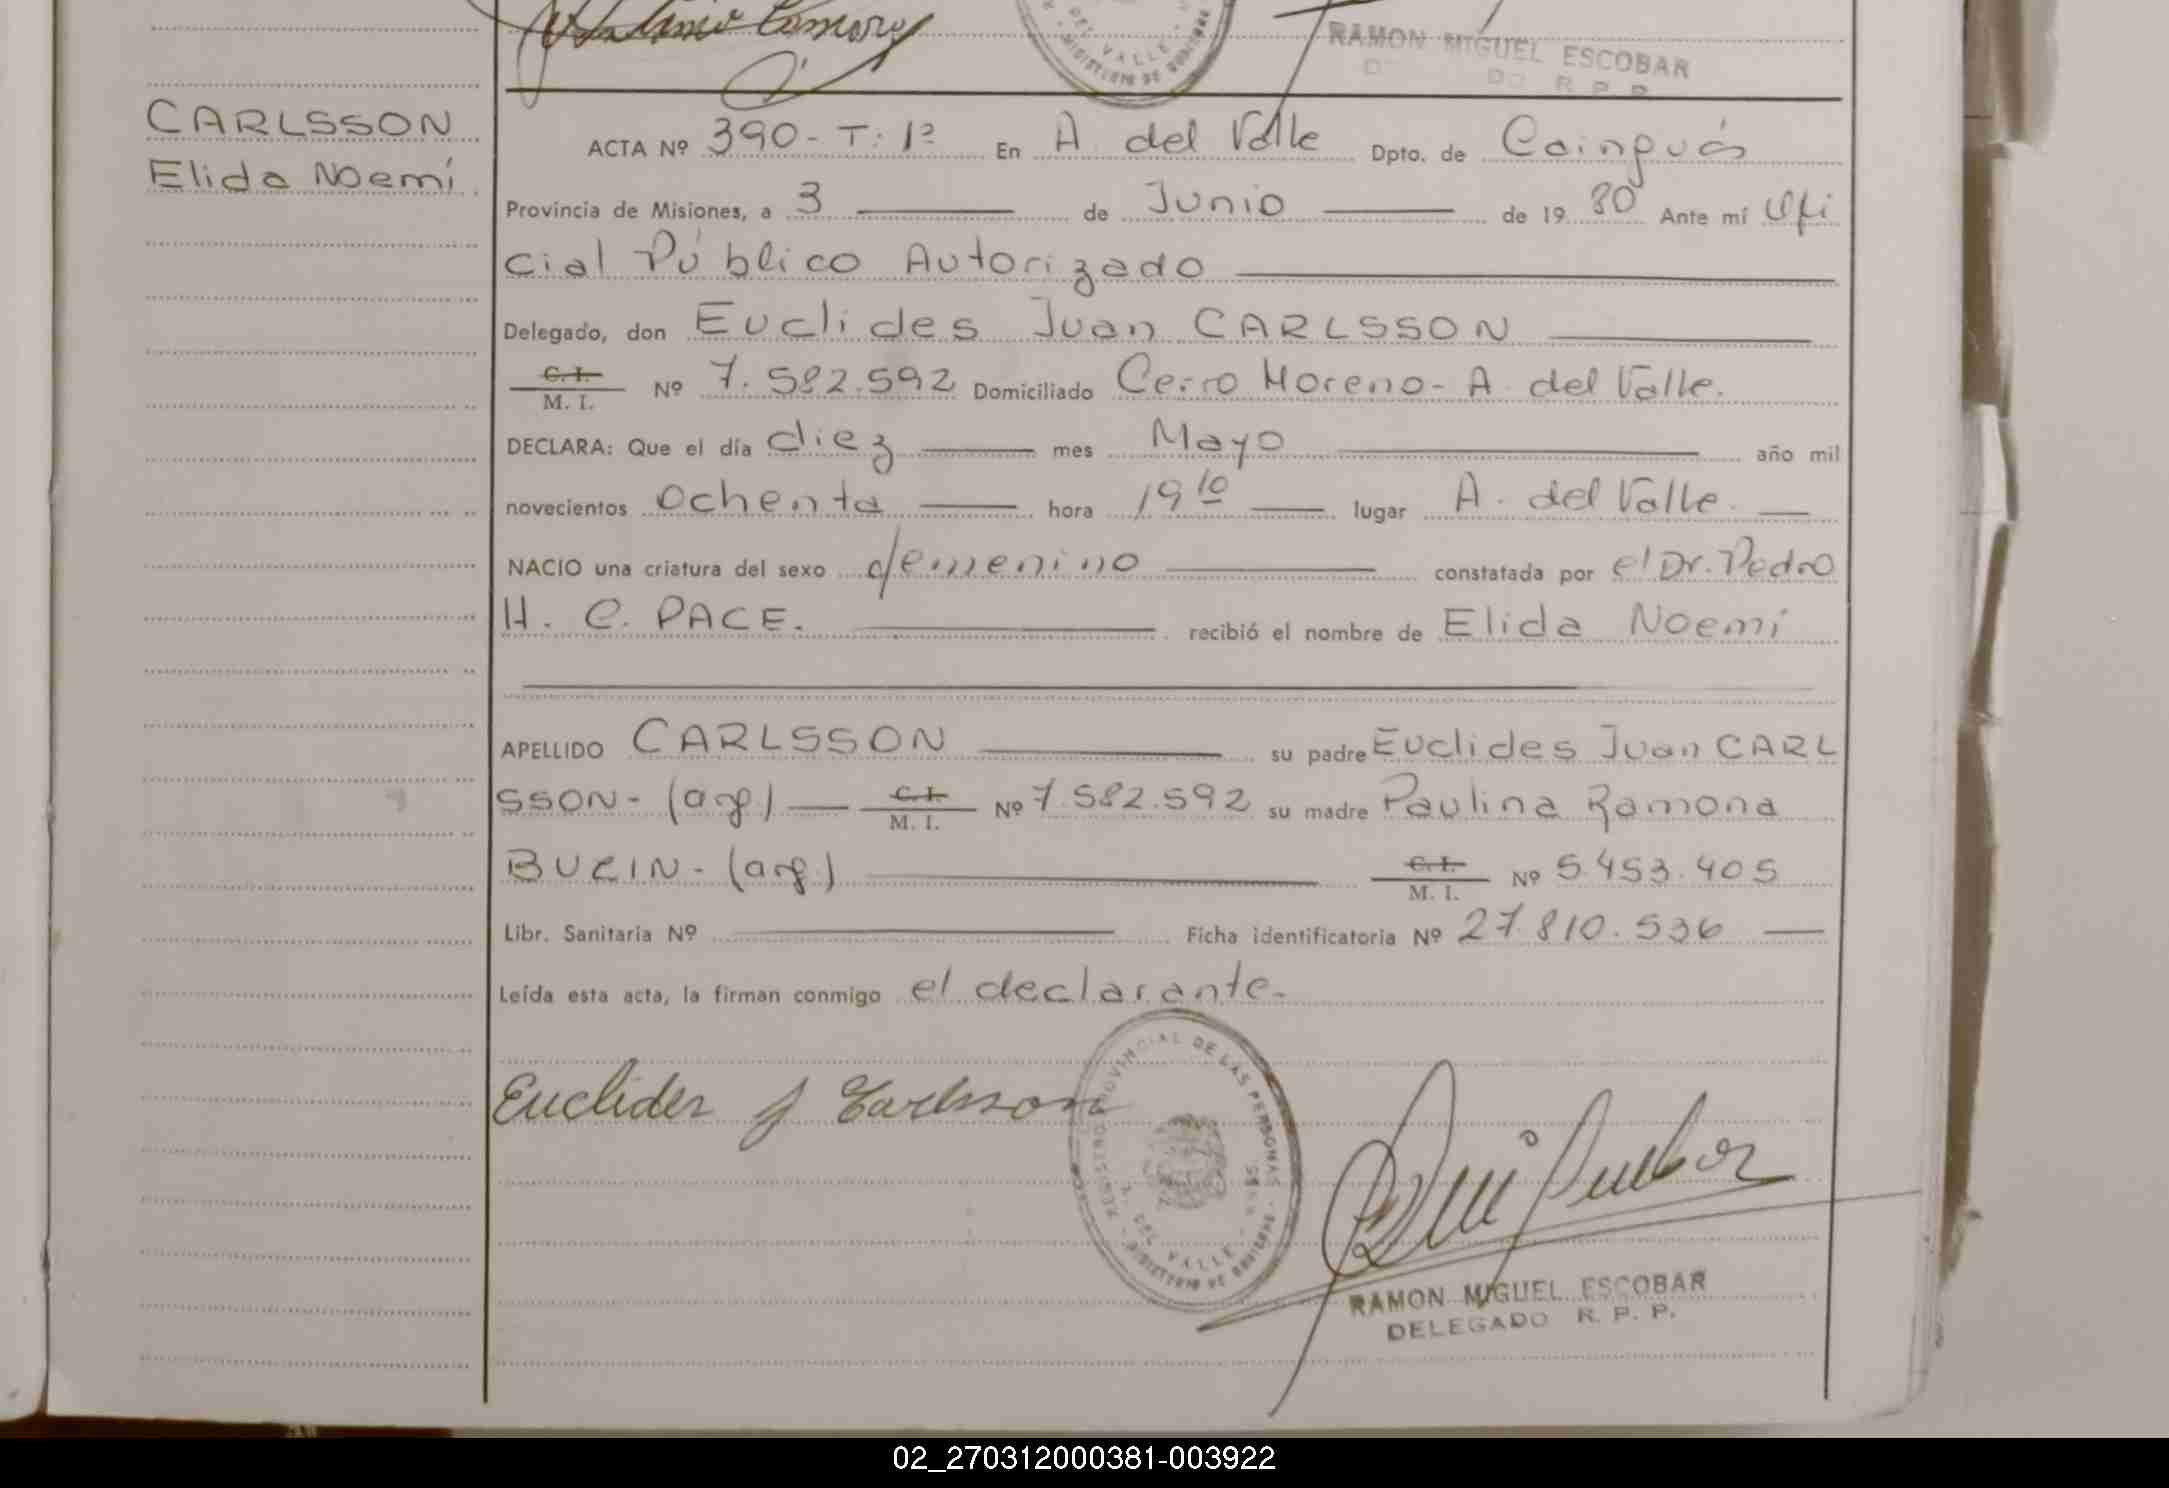 RAMON MIGUEL ESCOBAR
R. P. P.
DEL VALLE
MINISTERIO DE GOBIERNO
CARLSSON
Elida Noemí
ACTA Nº 390 - T: 1º En A. del Valle Dpto. de Cainguás
Provincia de Misiones, a 3 de Junio de 19 80 Ante mí Ofi
cial Público Autorizado
Delegado, don Euclides Juan CARLSSON
C. I.
M. I. Nº 7.582.592 Domiciliado Cerro Moreno - A. del Valle.
DECLARA: Que el día diez mes Mayo año mil
novecientos ochenta hora 19 10 lugar A. del Valle.
NACIO una criatura del sexo femenino constatada por el Dr. Pedro
H. C. PACE. recibió el nombre de Elida Noemí
APELLIDO CARLSSON su padre Euclides Juan CARL
SSON - (arg.) C. I. M. I. Nº 7.582.592 su madre Paulina Ramona
BUCIN - (arg.) C. I. M. I. Nº 5.453.405
Libr. Sanitaria Nº Ficha identificatoria Nº 27.810.536
Leída esta acta, la firman conmigo el declarante.
Euclides J Carlsson
REGISTRO PROVINCIAL DE LAS PERSONAS
A. DEL VALLE
MINISTERIO DE GOBIERNO
RAMON MIGUEL ESCOBAR
DELEGADO R. P. P.
02_270312000381-003922